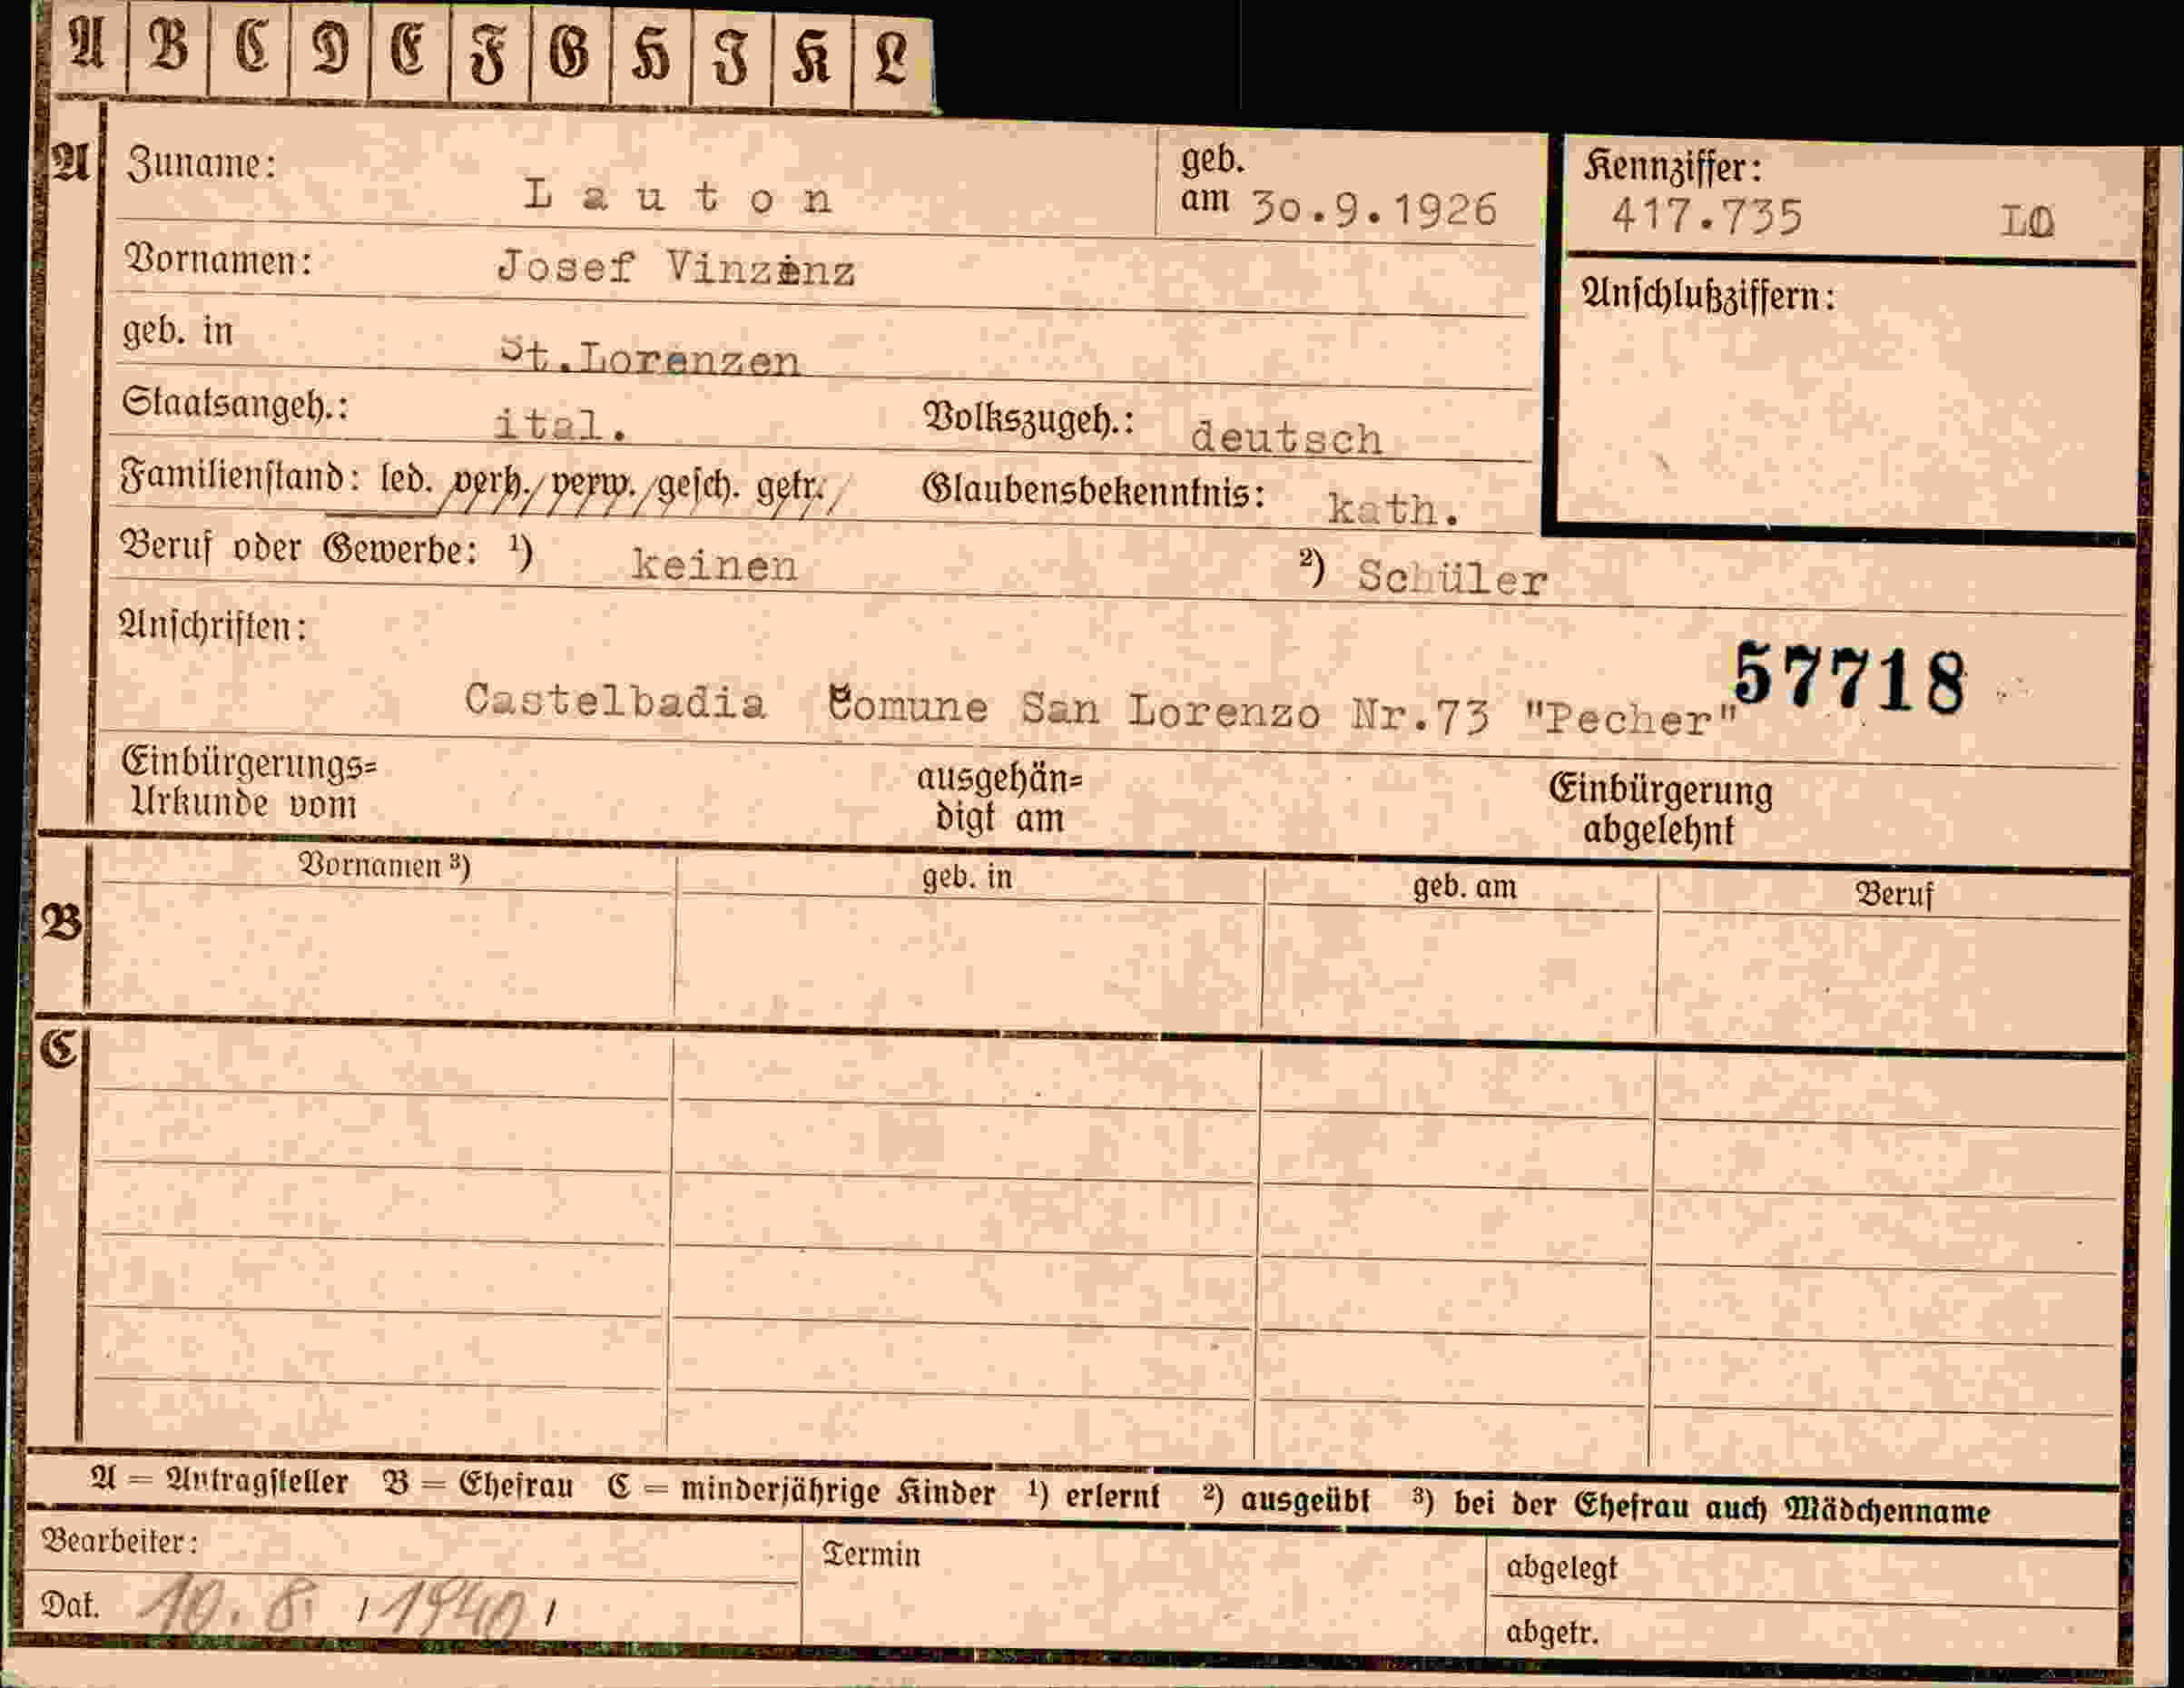 A B C D E F G H I K L
A Zuname: Lauton geb. am 30.9.1926 Kennziffer: 417.735 LO
Vornamen: Josef Vinzenz Anschlußziffern:
geb. in St.Lorenzen
Staatsangeh.: ital. Volkszugeh.: deutsch
Familienstand: led. verh. verw. gesch. getr. Glaubensbekenntnis: kath.
Beruf oder Gewerbe: ¹) keinen ²) Schüler
Anschriften:
57718
Castelbadia Comune San Lorenzo Nr.73 "Pecher"
Einbürgerungs= ausgehän= Einbürgerung
Urkunde vom digt am abgelehnt
Vornamen ³) geb. in geb. am Beruf
B
C
A = Antragsteller B = Ehefrau C = minderjährige Kinder ¹) erlernt ²) ausgeübt ³) bei der Ehefrau auch Mädchenname
Bearbeiter: Termin abgelegt
Dat. 10.8. 1940 abgetr.